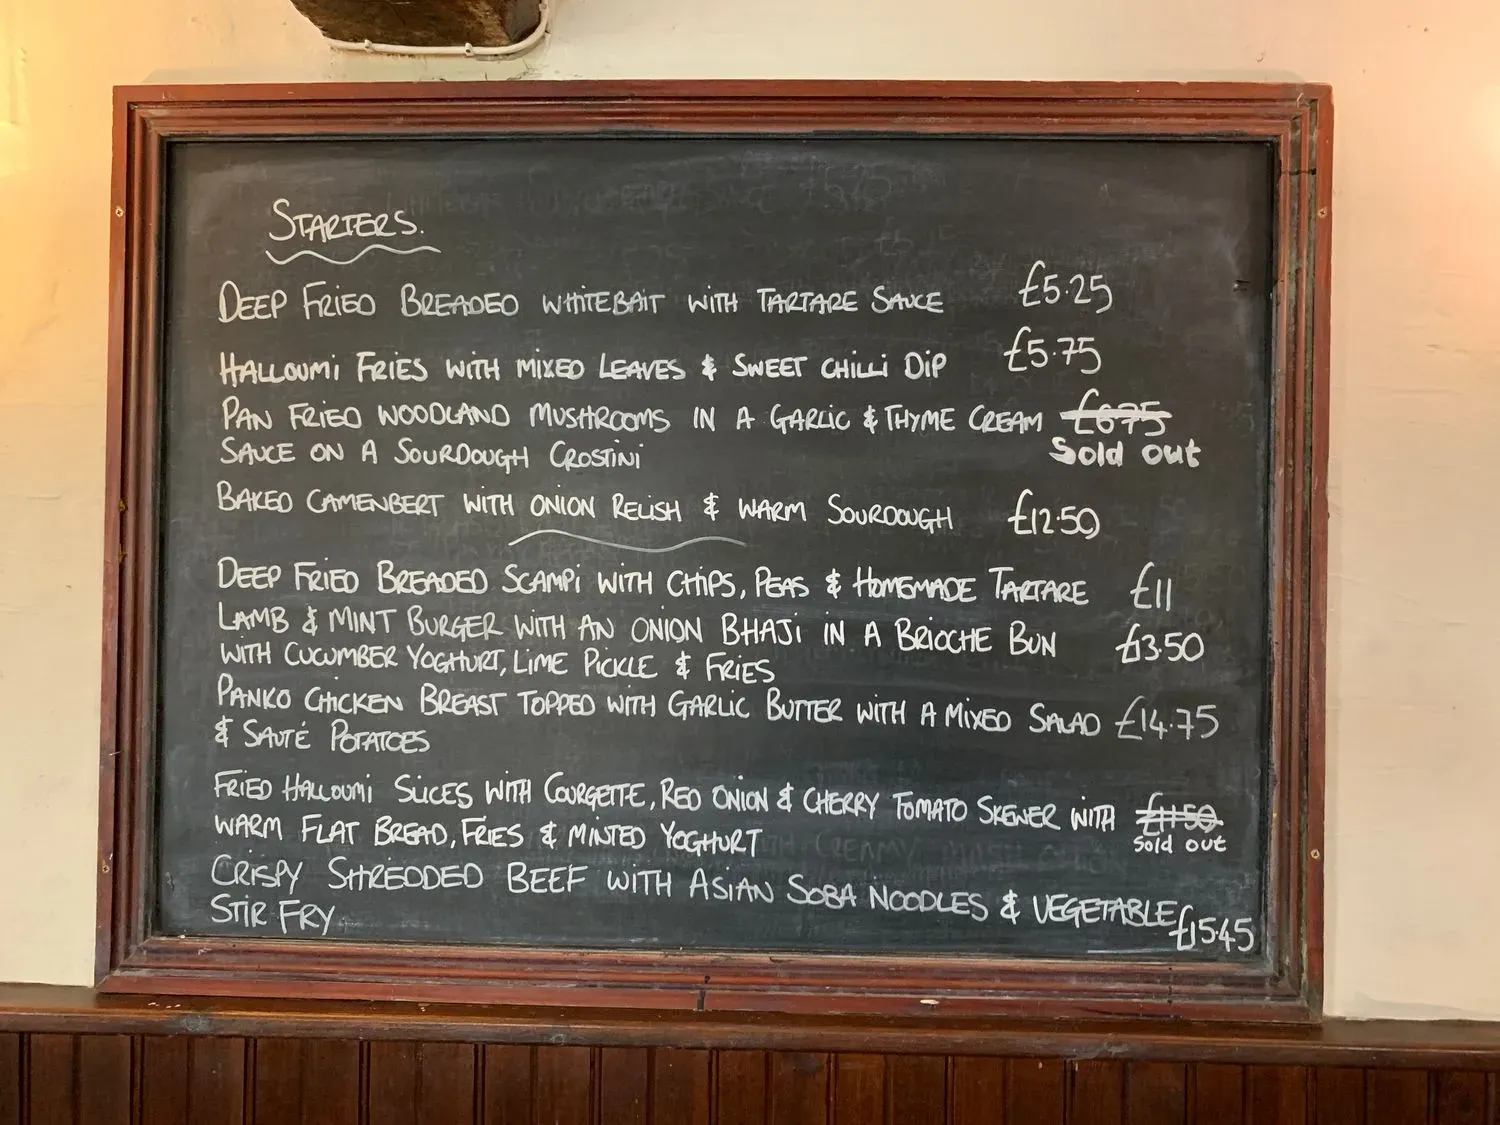 STARTERS.
DEEP FRIED BREADED WHITEBAIT WITH TARTARE SAUCE £5.25
HALLOUMI FRIES WITH MIXED LEAVES & SWEET CHILLI DIP £5.75
PAN FRIED WOODLAND MUSHROOMS IN A GARLIC & THYME CREAM £6.75
SAUCE ON A SOURDOUGH CROSTINI Sold out
BAKED CAMENBERT WITH ONION RELISH & WARM SOURDOUGH £12.50
DEEP FRIED BREADED SCAMPI WITH CHIPS, PEAS & HOMEMADE TARTARE £11
LAMB & MINT BURGER WITH AN ONION BHAJI IN A BRIOCHE BUN £13.50
WITH CUCUMBER YOGHURT, LIME PICKLE & FRIES
PANKO CHICKEN BREAST TOPPED WITH GARLIC BUTTER WITH A MIXED SALAD £14.75
& SAUTÉ POTATOES
FRIED HALLOUMI SLICES WITH COURGETTE, RED ONION & CHERRY TOMATO SKEWER WITH £11.50
WARM FLAT BREAD, FRIES & MINTED YOGHURT Sold out
CRISPY SHREDDED BEEF WITH ASIAN SOBA NOODLES & VEGETABLE
STIR FRY £15.45